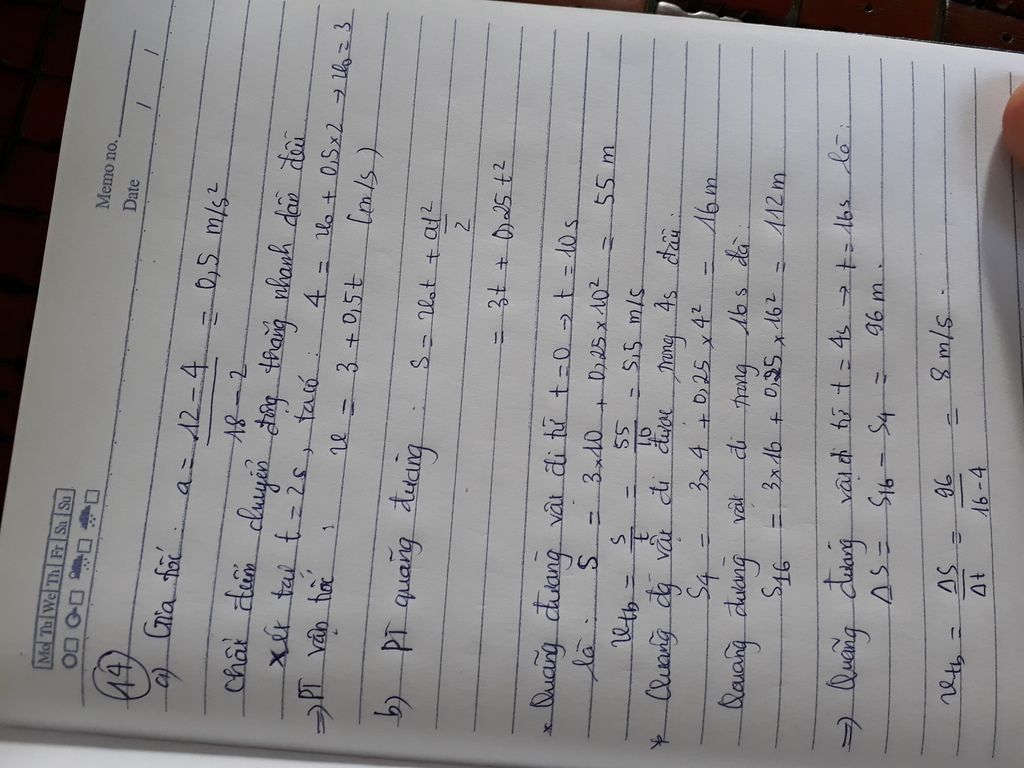 Memo no.
Date / /
Mo Tu We Th Fr Sa Su
14
a) Gia tốc: a = 12 - 4 / 18 - 2 = 0,5 m/s²
Chất điểm chuyển động thẳng nhanh dần đều
Xét tại t = 2s, ta có: 4 = v₀ + 0,5 x 2 → v₀ = 3
⇒ PT vận tốc: v = 3 + 0,5t (m/s)
b) PT quãng đường: S = v₀t + at²/2
= 3t + 0,25t²
* Quãng đường vật đi từ t = 0 → t = 10s
là: S = 3x10 + 0,25 x 10² = 55 m
vtb = s/t = 55/10 = 5,5 m/s
* Quãng đg vật đi được trong 4s đầu:
S4 = 3x4 + 0,25 x 4² = 16m
Quãng đường vật đi trong 16s là:
S16 = 3x16 + 0,25 x 16² = 112m
⇒ Quãng đường vật đi từ t = 4s → t = 16s là:
ΔS = S16 - S4 = 96m.
vtb = ΔS/Δt = 96/16-4 = 8m/s.